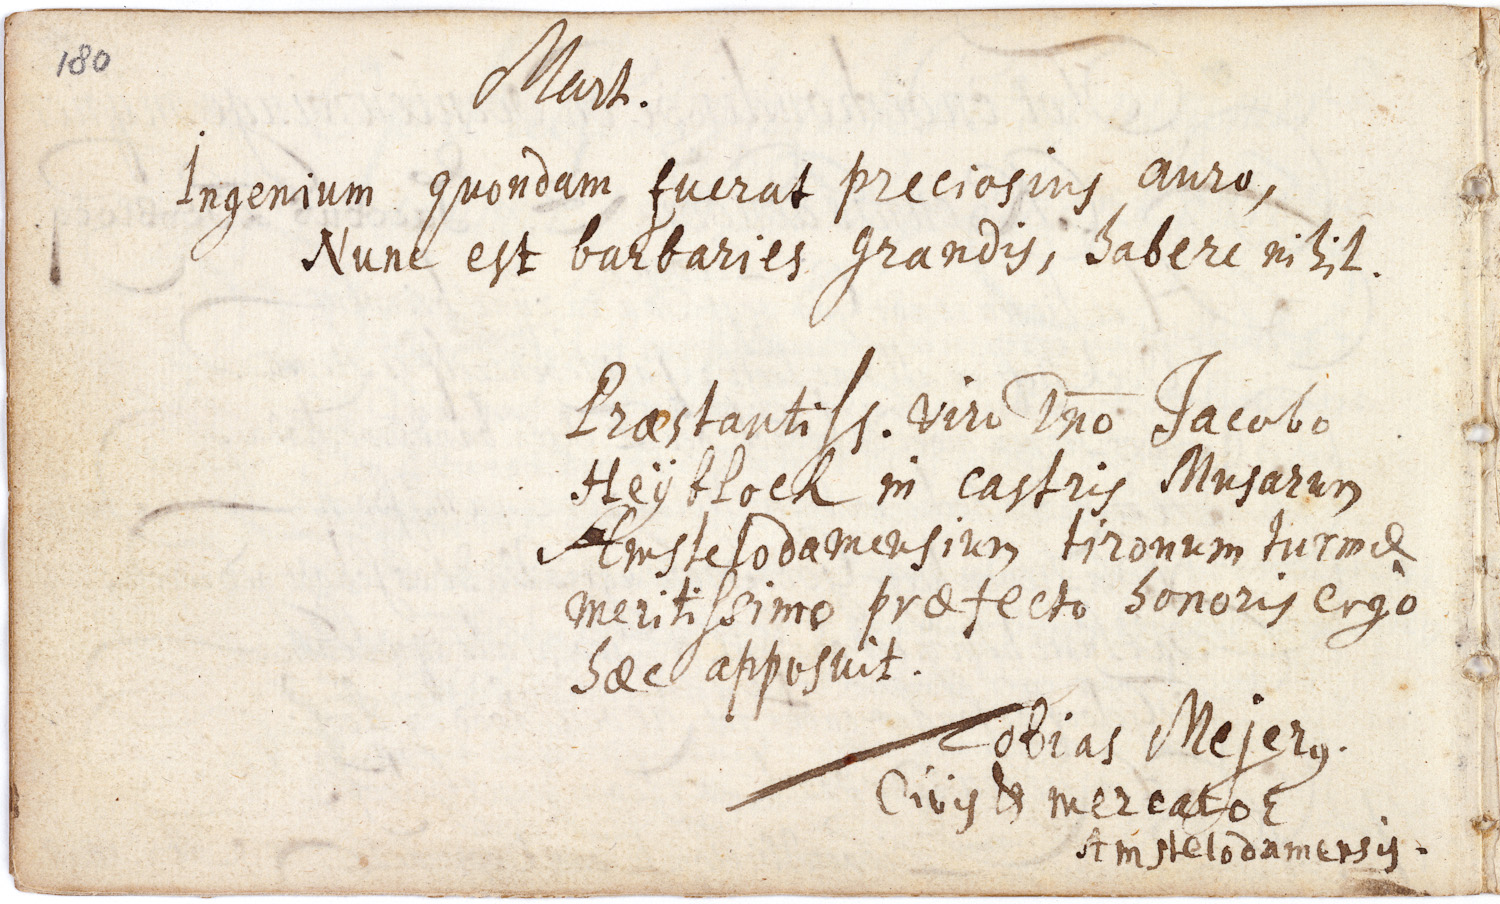 180
Mart.
Ingenium quondam fuerat preciosius auro,
Nunc est barbaries grandis, habere nihil.
Præstantiss. viro Dno Jacobo
Heÿblock in castris Musarum
Amstelodamensium tironum turmæ
meritissimo præfecto honoris ergò
hæc apposuit.
Tobias Mejerus.
Civis & mercator
Amstelodamensis.